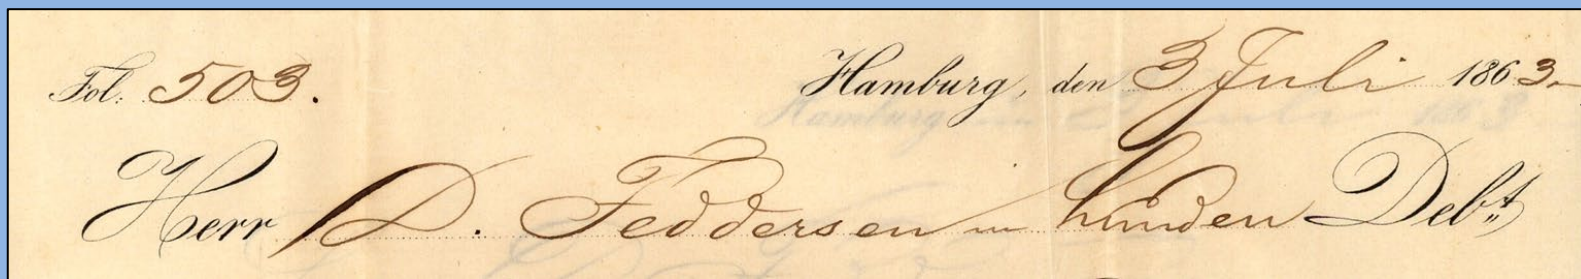 Fol: 503. Hamburg, den 3 Juli 1863.
Herr D. Feddersen in Lunden Debt